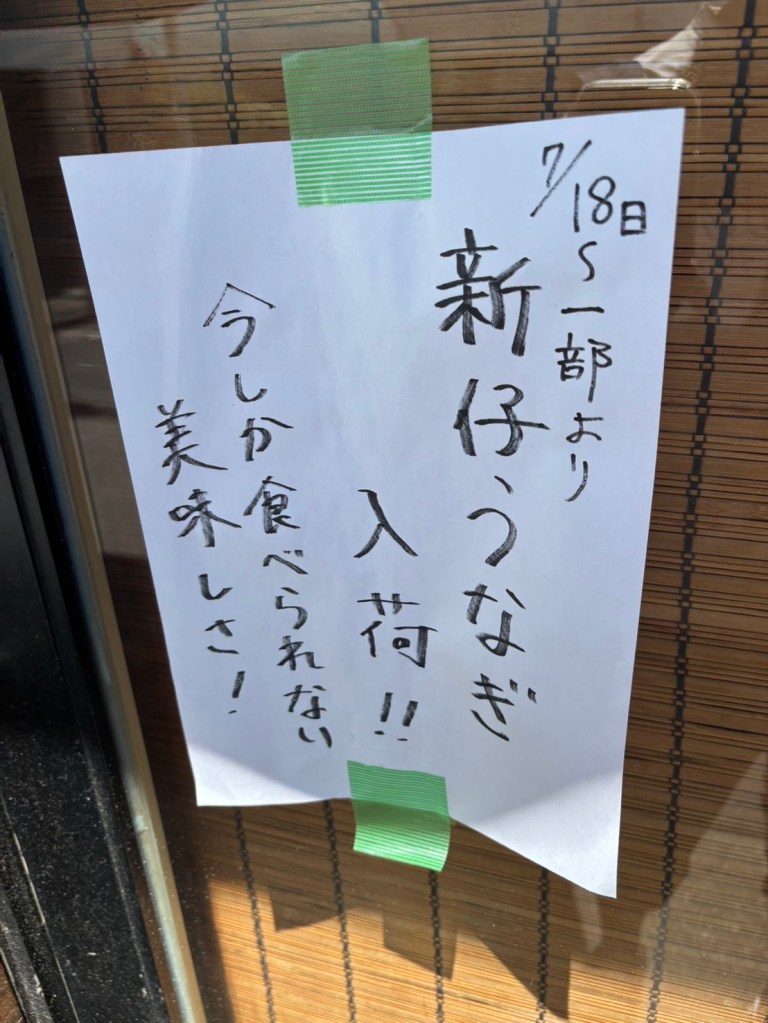 7/18日〜一部より
新仔うなぎ
入荷!!
今しか食べられない
美味しさ!